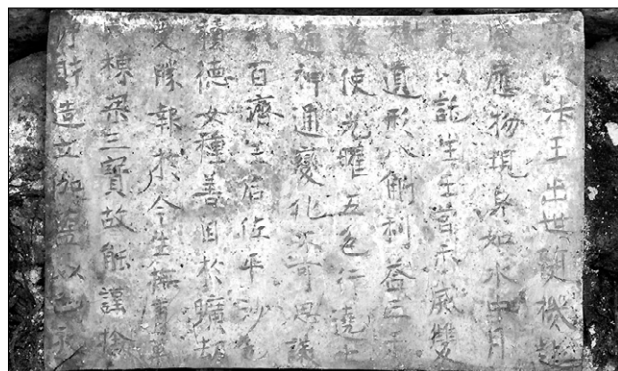 以法王出世隨機赴
應物現身如水中月
以託生王宮示滅雙
遺形八斛利益三千
使光曜五色行遶七
神通變化不可思議
百濟王后佐平沙乇
積德女種善因於曠劫
受勝報於今生撫育萬
棟梁三寶故能謹捨
淨財造立伽藍以己亥